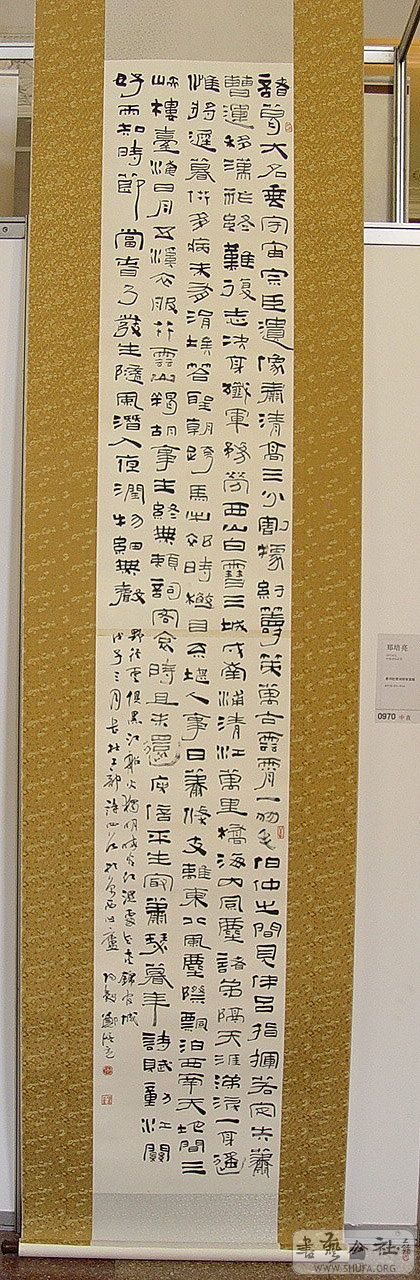 諸葛大名垂宇宙宗臣遺像肅清高三分割據紆籌策萬古雲霄一羽毛伯仲之間見伊呂指揮若定失蕭
曹運移漢祚終難復志決身殲軍務勞西山白雪三城戍南浦清江萬里橋海內風塵諸弟隔天涯涕淚一身遙
惟將遲暮供多病未有涓埃答聖朝跨馬出郊時極目不堪人事日蕭條支離東北風塵際飄泊西南天地間三
峽樓臺淹日月五溪衣服共雲山羯胡事主終無賴詞客哀時且未還庾信平生最蕭瑟暮年詩賦動江關
好雨知時節當春乃發生隨風潛入夜潤物細無聲
野徑雲俱黑江船火獨明曉看紅濕處花重錦官城
戊子三月書杜工部詩四首
鄭培亮
郑培亮
0970 中直
書藝公社
WWW.SHUFA.ORG